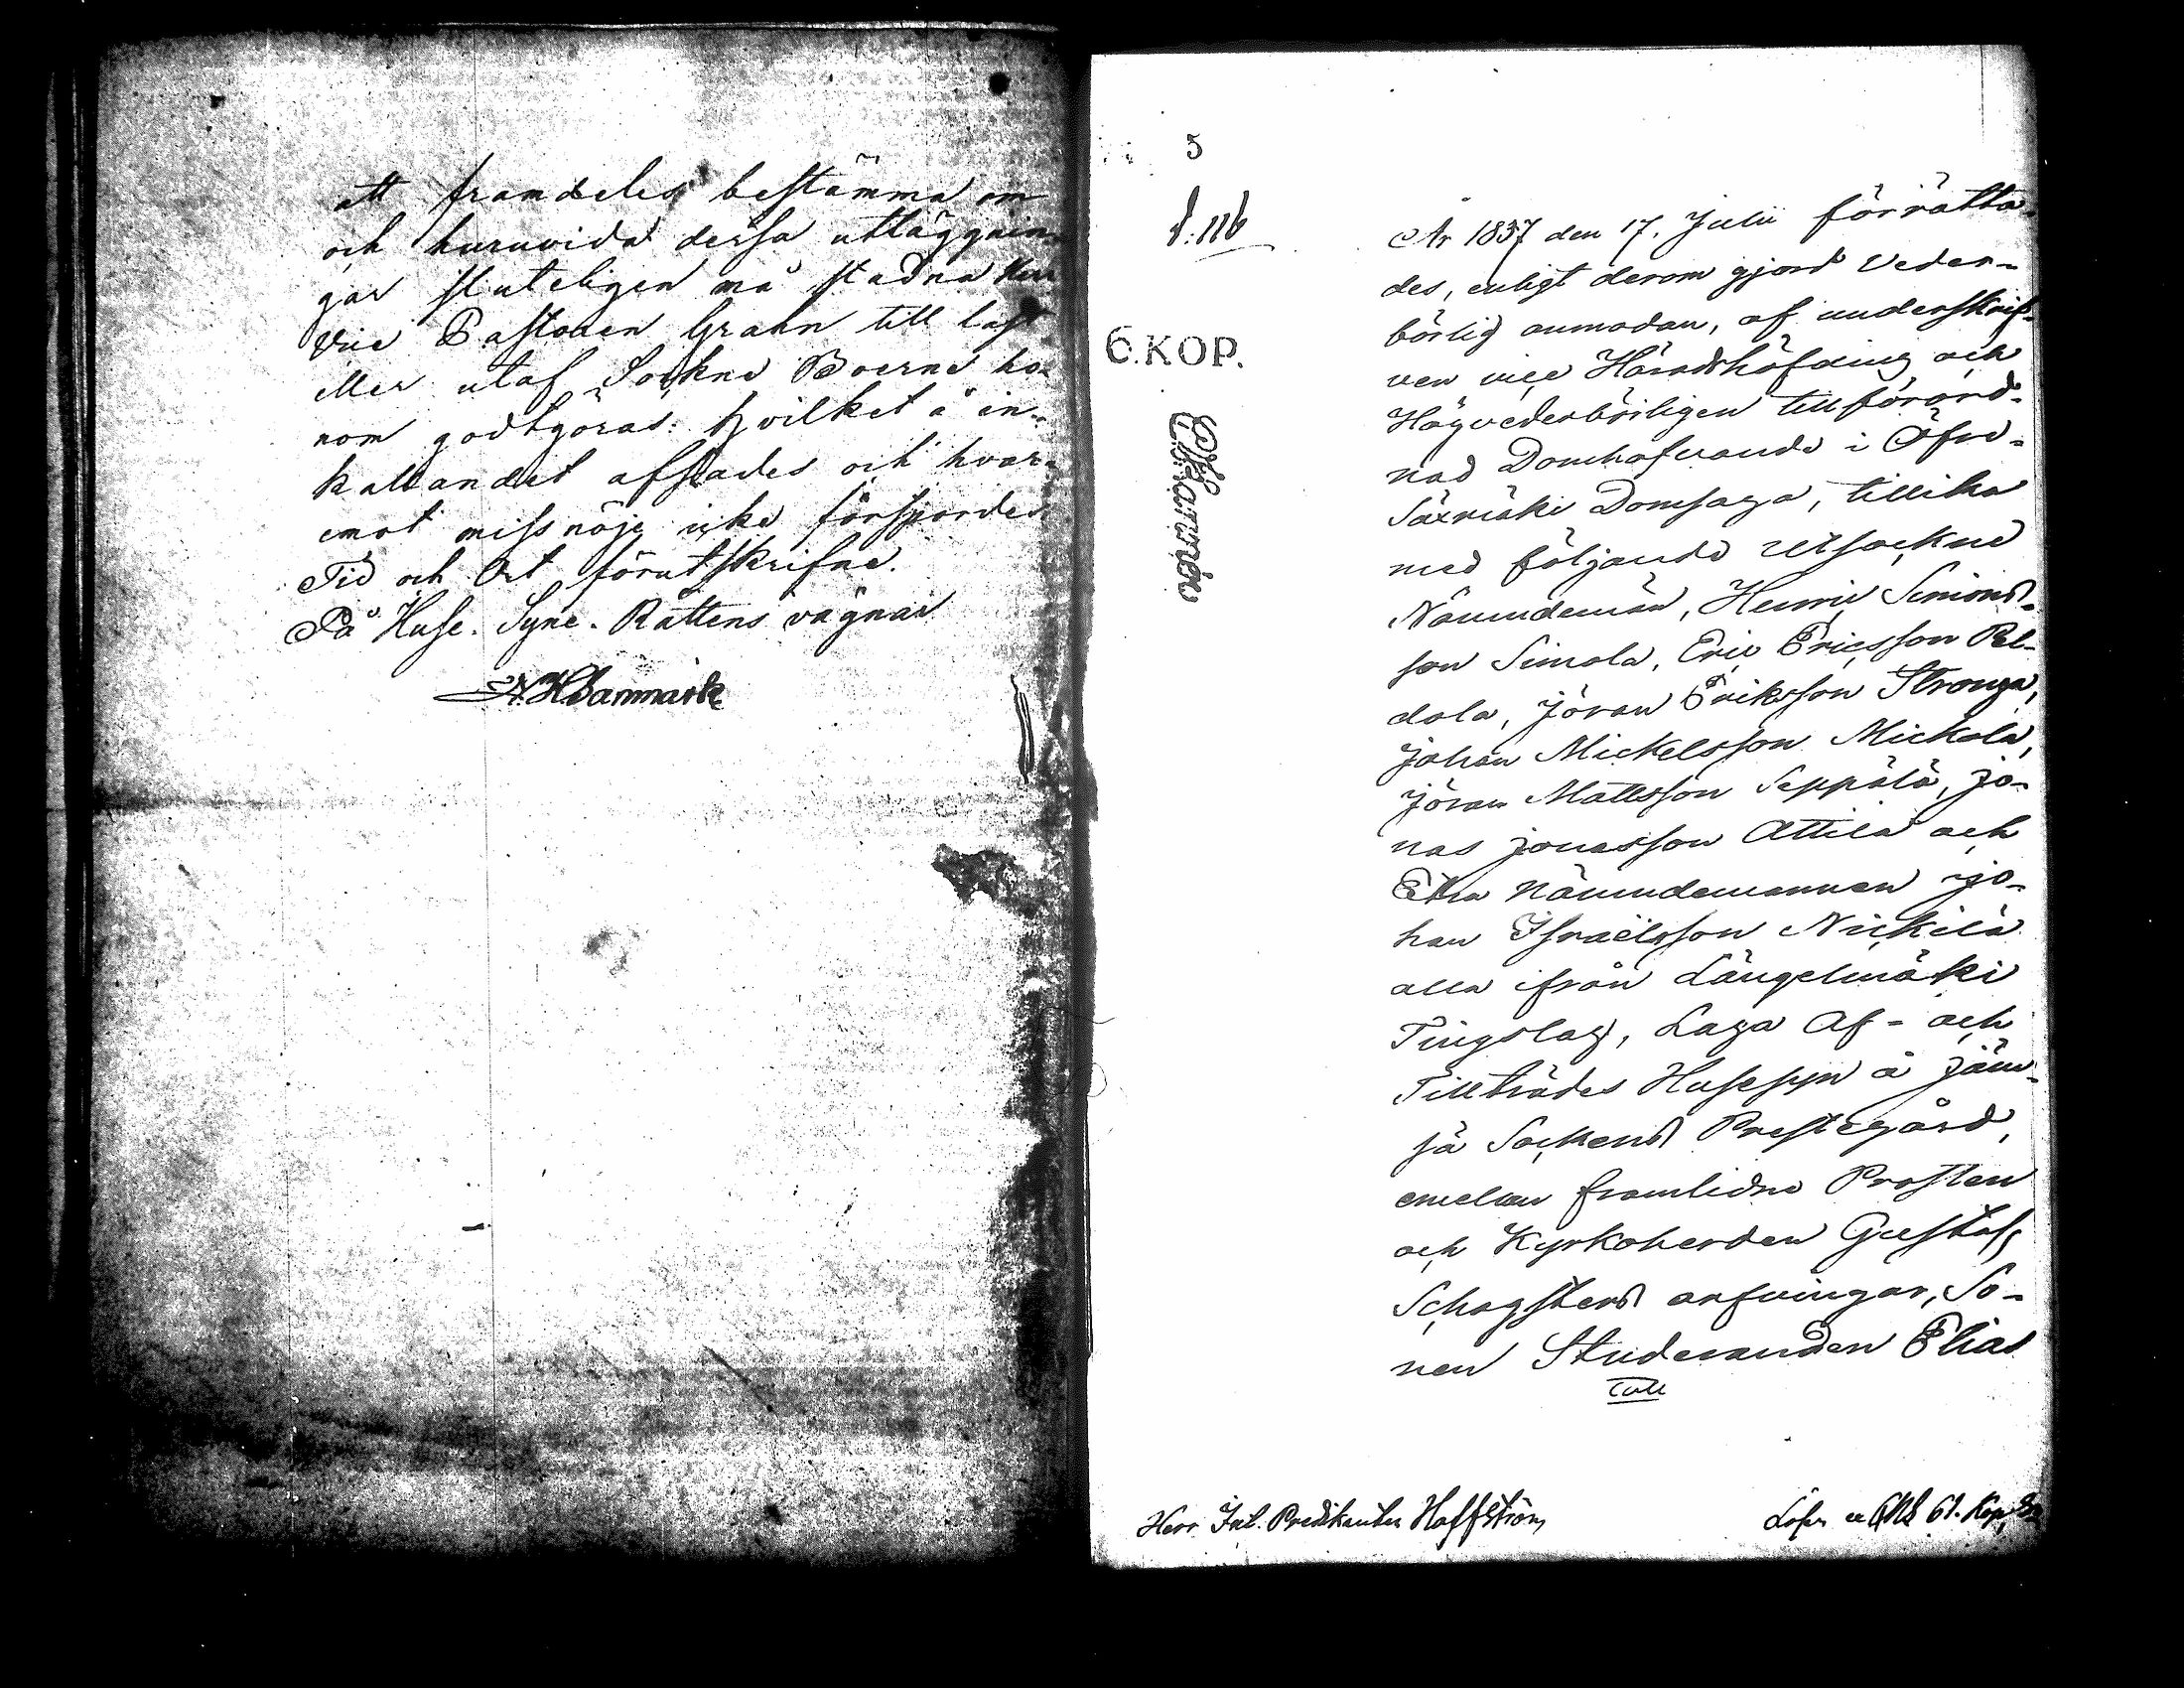 att framdeles bestämma om
och huruvida dessa utläggnin-
gar sluteligen må stadna Herr
Vice Pastoren Grahn till last
eller utaf Sokne Boerne ho-
nom godtgöras: hvilket å in-
kallandet afsades och hvar-
emot missnöje icke förspordes.
Tid och Ort förutskrifne.
På Huse-Syne-Rättens vägnar
N. H. Danmark
5
S: 116
6. KOP.
År 1837 den 17. Julii förrätta-
des, enligt derom gjord Veder-
börlig anmodan, af underskrif-
ven vice Häradshöfding och
Högvederbörligen tillförord-
nad Domhafvande i Öfre
Säxmäki Domsaga, tillika
med följande utsockne
Nämndemän, Henric Simons-
son Simola, Eric Ericsson Pel-
dola, Jöran Eriksson Stronga,
Johan Mickelsson Mickola,
Jöran Mattsson Seppälä, Jo-
nas Jonasson Attila och
Extra Nämndemannen Jo-
han Israëlsson Nickilä
alla ifrån Längelmäki
Tingslag, Laga Af- och
Tillträdes Husesyn å Jäm-
sä Sockens Prestegård,
emellan framlidne Prosten
och Kyrkoherden Gustaf
Schogsters arfvingar, So-
nen Studeranden Elias
Herr Predikanten Haffström
Lösen 61. Kop.